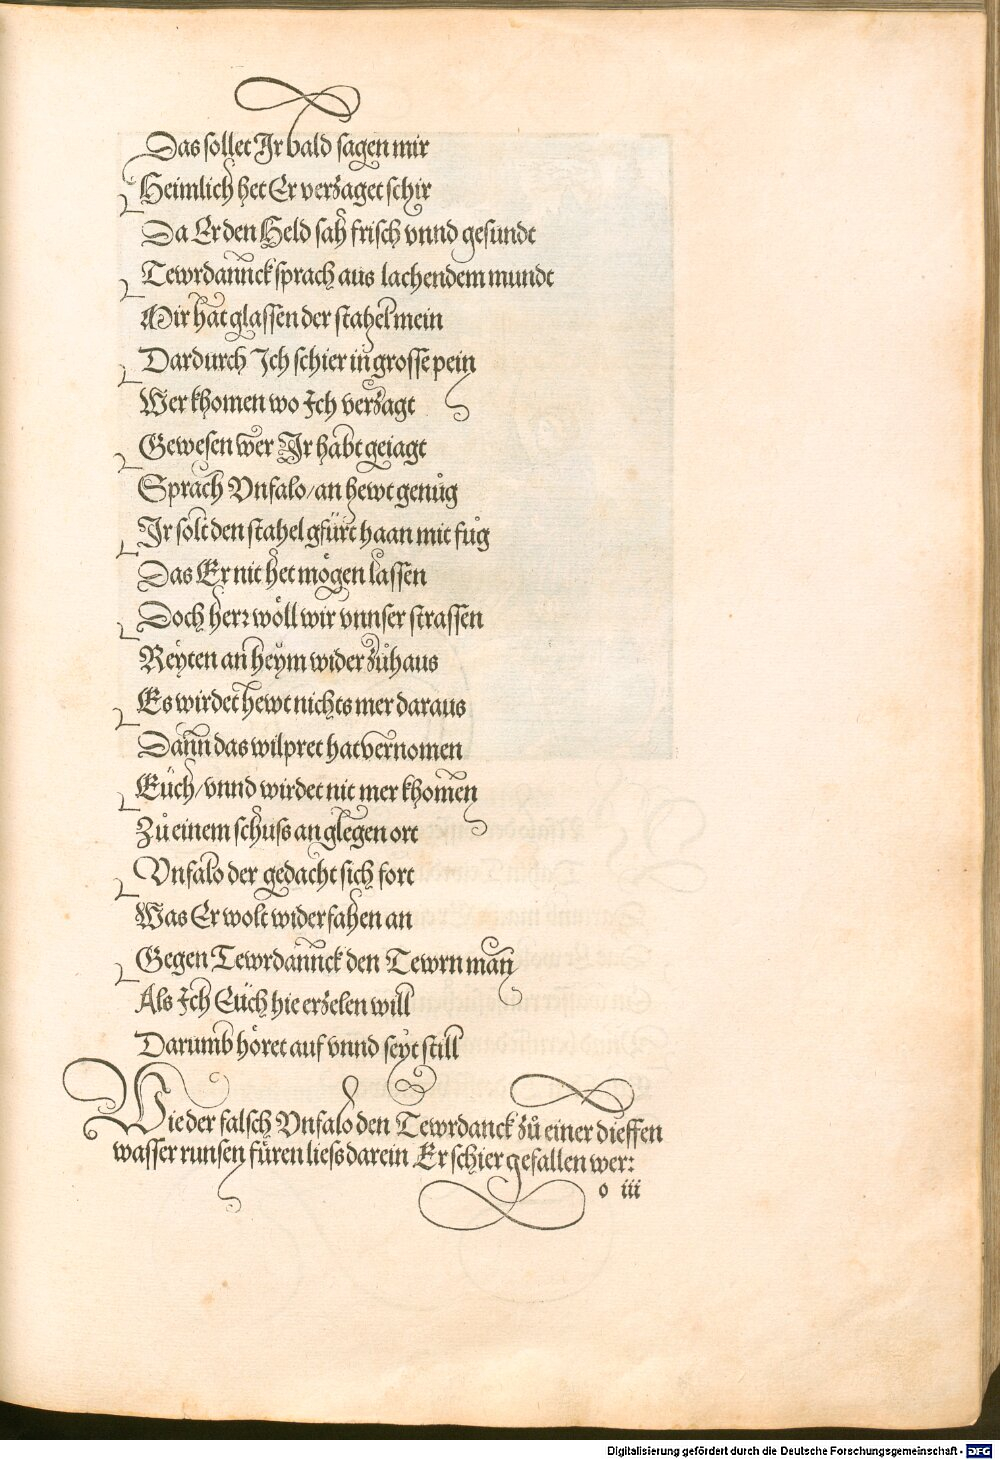 Das sollet Jr bald sagen mir
Heimlich het Er verzaget schir
Da Er den Held sah frisch vnnd gesundt
Tewrdannck sprach aus lachendem mundt
Mir hat glassen der stahel mein
Dardurch Jch schier in grosse pein
Wer khomen wo Jch verzagt
Gewesen wer Jr habt geiagt
Sprach Vnfalo/an hewt genůg
Jr solt den stahel gfürt haan mit fůg
Das Er nit het mögen lassen
Doch herr wöll wir vnnser strassen
Reyten an heym wider zůhaus
Es wirdet hewt nichts mer daraus
Dann das wilpret hat vernomen
Eüch/vnnd wirdet nit mer khomen
Zů einem schuss an glegen ort
Vnfalo der gedacht sich fort
Was Er wolt wider fahen an
Gegen Tewrdannck den Tewrn man
Als Jch Eüch hie erzelen will
Darumb höret auf vnnd seyt still
Wie der falsch Vnfalo den Tewrdanck zů einer dieffen
wasser runsen füren liess darein Er schier gefallen wer:
o iii
Digitalisierung gefördert durch die Deutsche Forschungsgemeinschaft - DFG